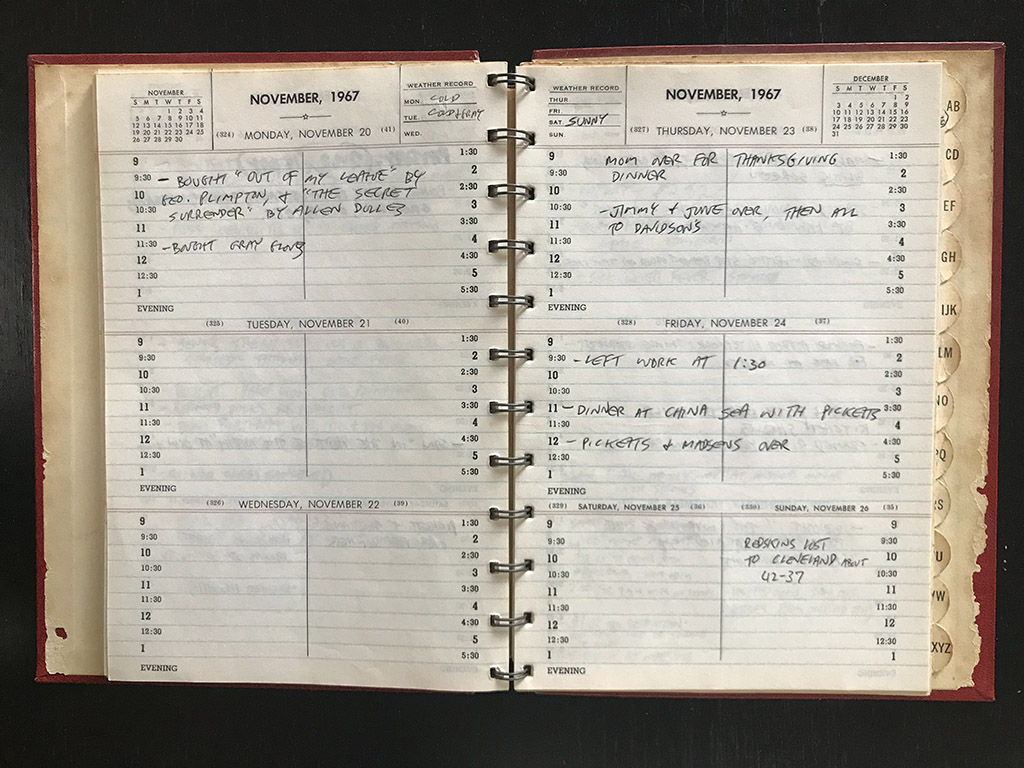 NOVEMBER
S M T W T F S
1 2 3 4
5 6 7 8 9 10 11
12 13 14 15 16 17 18
19 20 21 22 23 24 25
26 27 28 29 30
NOVEMBER, 1967
WEATHER RECORD
MON. COLD
TUE. COLD & GRAY
WED.
(324) MONDAY, NOVEMBER 20 (41)
9 1:30
9:30 - BOUGHT "OUT OF MY LEAGUE" BY 2
10 GEO. PLIMPTON, & "THE SECRET 2:30
10:30 SURRENDER" BY ALLEN DULLES 3
11 3:30
11:30 - BOUGHT GRAY GLOVES 4
12 4:30
12:30 5
1 5:30
EVENING
(325) TUESDAY, NOVEMBER 21 (40)
9 1:30
9:30 2
10 2:30
10:30 3
11 3:30
11:30 4
12 4:30
12:30 5
1 5:30
EVENING
(326) WEDNESDAY, NOVEMBER 22 (39)
9 1:30
9:30 2
10 2:30
10:30 3
11 3:30
11:30 4
12 4:30
12:30 5
1 5:30
EVENING
WEATHER RECORD
THUR.
FRI.
SAT. SUNNY
SUN.
NOVEMBER, 1967
DECEMBER
S M T W T F S
1 2
3 4 5 6 7 8 9
10 11 12 13 14 15 16
17 18 19 20 21 22 23
24 25 26 27 28 29 30
31
(327) THURSDAY, NOVEMBER 23 (38)
9 MOM OVER FOR THANKSGIVING 1:30
9:30 DINNER 2
10 2:30
10:30 - JIMMY & JUNE OVER, THEN ALL 3
11 TO DAVIDSON'S 3:30
11:30 4
12 4:30
12:30 5
1 5:30
EVENING
(328) FRIDAY, NOVEMBER 24 (37)
9 1:30
9:30 - LEFT WORK AT 1:30 2
10 2:30
10:30 3
11 - DINNER AT CHINA SEA WITH PICKETTS 3:30
11:30 4
12 - PICKETTS & MADSENS OVER 4:30
12:30 5
1 5:30
EVENING
(329) SATURDAY, NOVEMBER 25 (36) (330) SUNDAY, NOVEMBER 26 (35)
9 9
9:30 REDSKINS LOST 9:30
10 TO CLEVELAND ABOUT 10
10:30 42-37 10:30
11 11
11:30 11:30
12 12
12:30 12:30
1 1
EVENING
AB
CD
EF
GH
IJK
LM
NO
PQ
RS
U
VW
XYZ